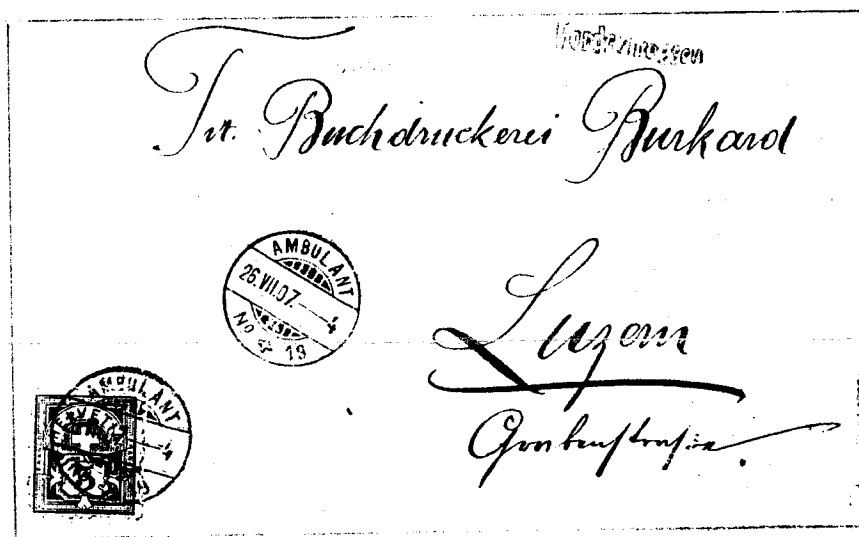 Tit. Buchdruckerei Burkard
AMBULANT
26.VII.07. 4
No 19
Luzern
Grabenstrasse.
AMBULANT
4
HELVETIA